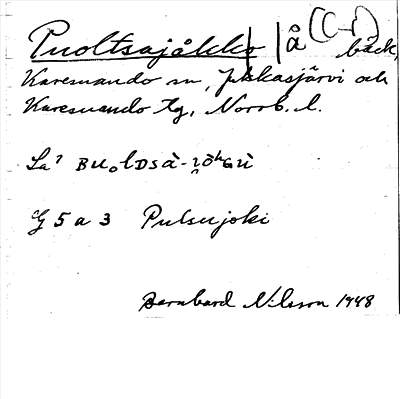 Puoltsajåkko | | å (C-1) bäck,
Karesuando sn, Jukkasjärvi och
Karesuando tg, Norrb. l.
La
G 5 a 3 Pulsujoki
Bernhard Nilsson 1948